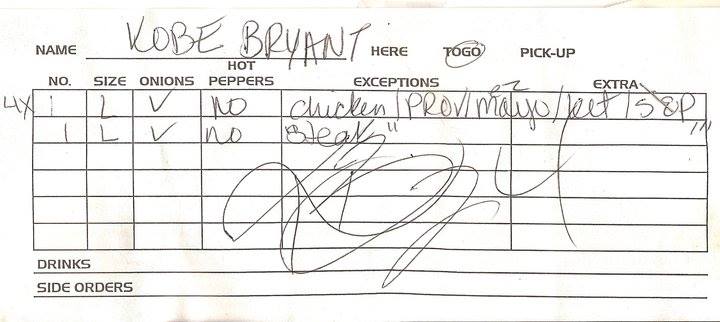 NAME KOBE BRYANT HERE TOGO PICK-UP
NO. SIZE ONIONS HOT PEPPERS EXCEPTIONS EXTRA
4X 1 L ✓ NO chicken/PROV/mayo/ket/S&P
ez
1 L ✓ NO steak " "
DRINKS
SIDE ORDERS